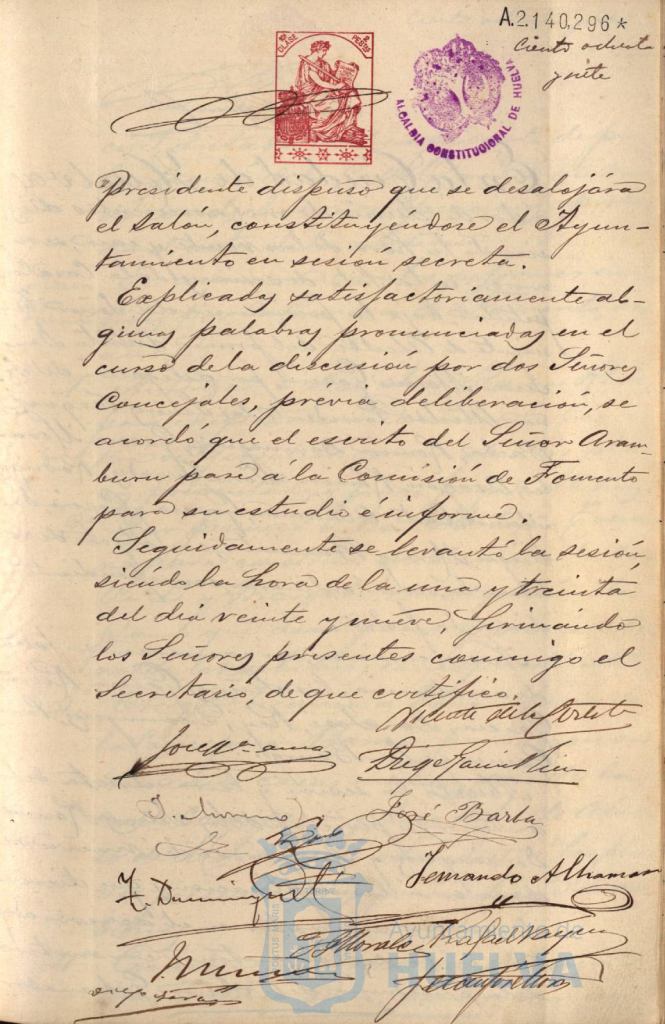 A.2.140,296*
Ciento ochenta
y siete
10ª CLASE 2 PESTAS
ALCALDIA CONSTITUCIONAL DE HUELVA
Presidente dispuso que se desalojára
el salón, constituyéndose el Ayun-
tamiento en sesión secreta.
Explicadas satisfactoriamente al-
gunas palabras pronunciadas en el
curso de la discusión por dos Señores
Concejales, prévia deliberación, se
acordó que el escrito del Señor Aram-
buru pase á la Comisión de Fomento
para su estudio é informe.
Seguidamente se levantó la sesión,
siendo la hora de la una y treinta
del dia veinte y nueve, firmando
los Señores presentes conmigo el
Secretario, de que certifico.
Vicente de la
José Mª
Diego
J. Moreno José Barba
F. Dominguez Fernando Alhaman
Morales Rafael
Ayuntamiento de
HUELVA
Diego